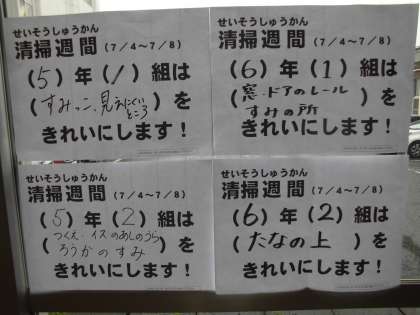 せいそうしゅうかん
清掃週間(7/4～7/8)
(5)年(1)組は
(すみっこ、見えにくいところ)を
きれいにします!
せいそうしゅうかん
清掃週間(7/4～7/8)
(6)年(1)組は
(窓・ドアのレール
すみの所)を
きれいにします!
せいそうしゅうかん
清掃週間(7/4～7/8)
(5)年(2)組は
(つくえ・イスのあしのうら
ろうかのすみ)を
きれいにします!
せいそうしゅうかん
清掃週間(7/4～7/8)
(6)年(2)組は
(たなの上)を
きれいにします!